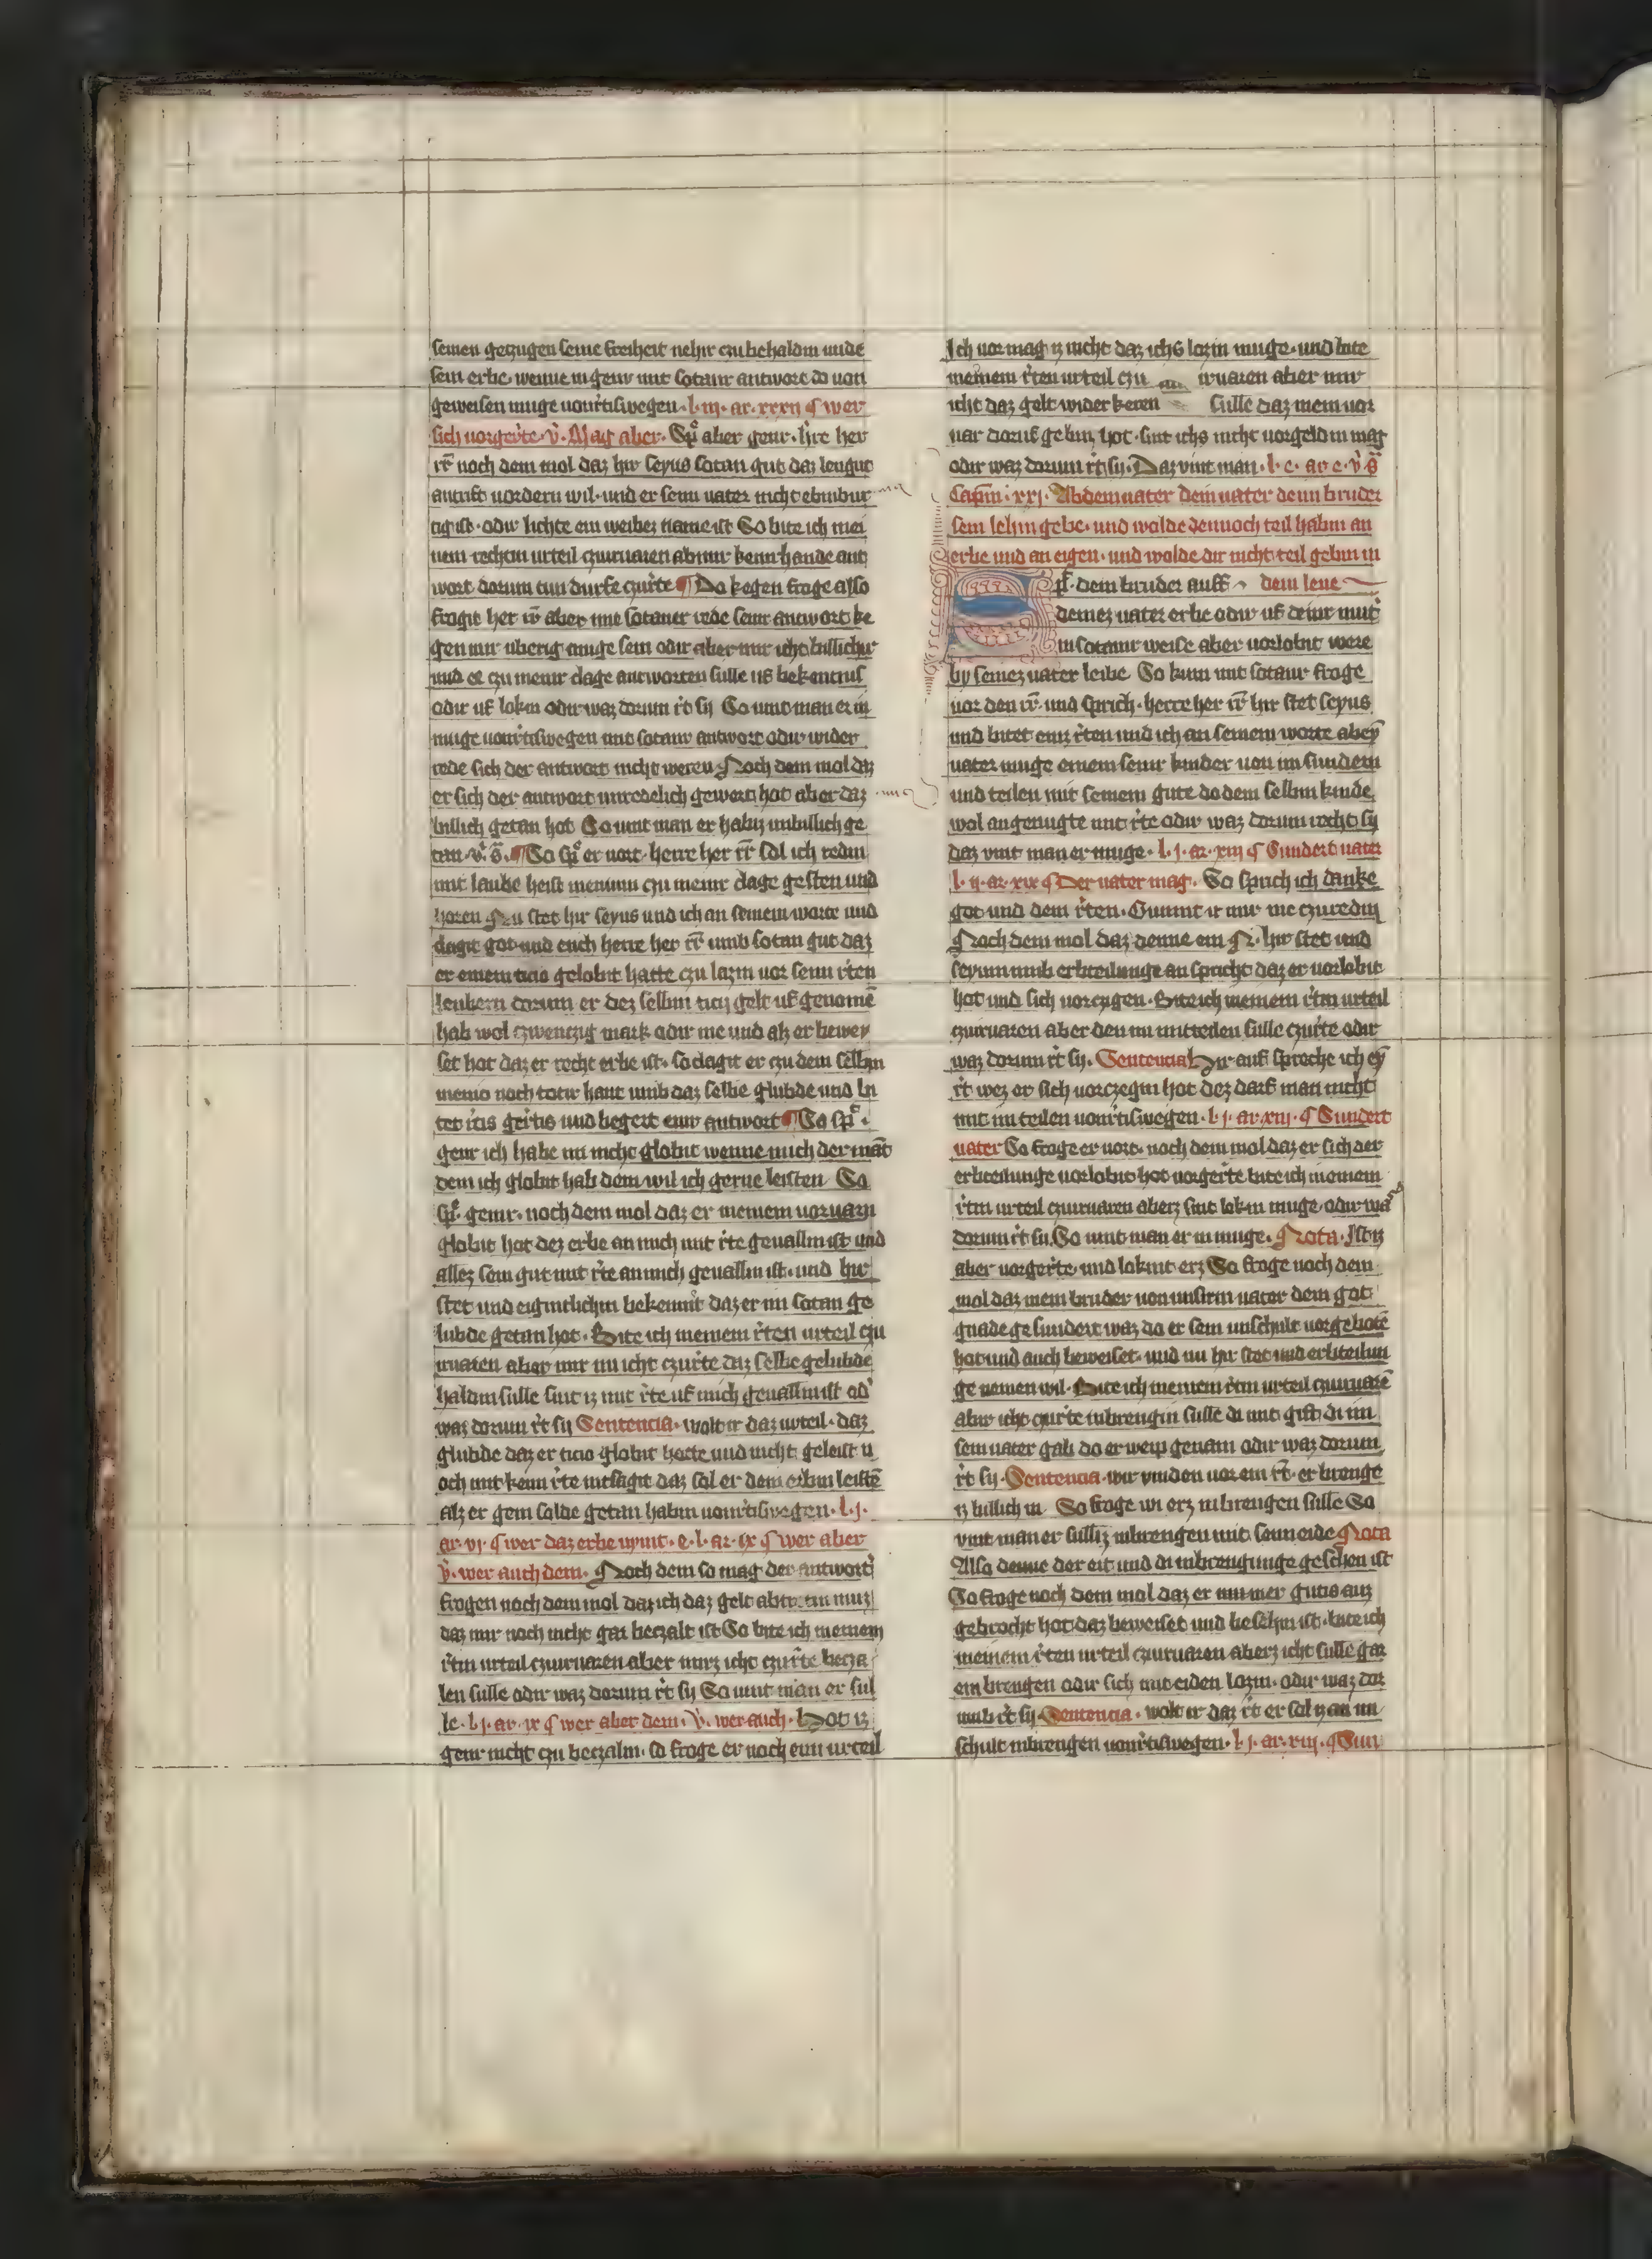 semen geczugen seine freiheit nehir czu behaldin unde
sein erbe · wenne in genir mit sotanir antwort do von
geweisen muge von rechtiswegen · l · iii · ar · xxxii ¶ wer
sich vorgerite · v̊ · Mag aber · Spͥ aber genir · hͥre her
rr̄ noch dem mol daz hir seyus sotan gut daz leugut
antrift vordern wil · und er seim vater nicht ebinbur
tig ist · odir lichte ein weibez name ist So bite ich mei
nem rechtin urteil czuirvaren ab mir kenn hande ant
wort dorum tun durfe czurͥte ¶ Do kegen froge also
frogit her rr̄ aber mit sotaner rede seinr antwort ke
gen mir uberig muge sein odir aber mir icht billichir
und er czu meinr clage antworten sulle uf bekentnis
odir uf lokin odir waz dorum rͥt sy So vint man er in
muge von rͥtiswegen mit sotanr antwort odir wider
rede sich der antwort nicht weren Noch dem mol daz
er sich der antwort unredelich gewert hat aber daz
billich getan hot So vint man er habiz unbillich ge
tan · v̊ · s̄ · ¶ So spͥ er vort · herre her rr̄ sol ich redin
mit laube heist meninin czu meinr clage gesten und
horen Nu stet hir seyus und ich an seinem worte und
clagit got und euch herre her rr̄ umb sotan gut daz
er einem ticio gelobit hatte czu lazin vor seim rͥten
leukern dorum er dez selbin ticii gelt uf genomē
hab wol czwenczig mark odir me und alz er bewey
set hot daz er recht erbe ist · so clagit er czu dem selbin
menio noch totir hant umb daz selbe glubde und bi
tet itis geͥtis und begert einr antwort ¶ So spͥ ·
genir ich habe im nicht globit wenne mich der mā̄t
dem ich globit hab dem wil ich gerne leisten So
spͥ · genir · noch dem mol daz er meinem vorvarn
globit hot dez erbe an mich mit rͥte gevallin ist und
allez sein gut mit rͥte an mich gevallin ist · und hir
stet und eigintlichin bekennit daz er im sotan ge
lubde getan hot · Bite ich meinem rͥten urteil czu
irvaren aber mir nu icht czurͥte daz selbe gelubde
haldin sulle sint iz mit rͥte uf mich gevallin ist od'
waz dorum rͥt sy Sentencia · wolt ir daz urteil · daz
glubde daz er ticio globit hette und nicht geleist n
och mit kenn rͥte intsagit daz sol er dem erbin leistē
alz er gem solde getan habin von rͥtiswegen · l · j ·
ar · vj · ¶ wer daz erbe nymt · e · l · ar · ix ¶ wer aber
v̊ · wer auch dem · Noch dem so mag der antwortͥ
frogen noch dem mol daz ich daz gelt abtretin muz
daz mir noch nicht gar beczalt ist So bite ich meinem
rͥtin urteil czuirvaren aber mirz icht czurͥte becza
len sulle odir waz dorum rͥt sy So vint man er sul
le · l j · ar · ix ¶ wer aber dem · v̊ · wer auch · Hot iz
genir nicht czu beczalin · so froge er noch eim urteil
Ich vormag iz nicht daz ichs lozin muge · und bite
meinem rͥten urteil czu irvaren aber mir
icht daz gelt wider keren sulle daz mein vor
var doruf gebin hot · sint ichs nicht vorgeldin mag
odir waz dorum rͥt sy · Daz vint man · l · e · ar e · v̊ s̄
Capm̄ · xxj · Ab dem vater dein vater deim bruder
sein lehin gebe · und wolde dennoch teil habin an
erbe und an eigen · und wolde dir nicht teil gebin in
Spͥ · dem bruder auff dem lene
deinez vater erbe odir uf deinr mutͥ
in sotanir weise aber vorlobit were
by seinez vater leibe So kum mit sotanr froge
vor den rr̄ · und sprich · herre her rr̄ hir stet seyus
und bitet einz rͥten und ich an seinem worte abey
vater muge einem seinr kinder von im sundern
und teilen mit seinem gute do dem selbin kinde
wol angenugte mit rͥte odir waz dorum recht sy
daz vint man er muge · l · j · ar · xiij ¶ Sundert vater
l · ij · ar · xix ¶ Der vater mag · So sprich ich danke
got und dem rͥten · Gunnit ir mir me czuredin
Noch dem mol daz denne ein N · hir stet und
seyum umb erbteilunge an spricht daz er vorlobit
hot und sich vorczygen · Bite ich meinem rͥtin urteil
czuirvaren aber den im mitteilen sulle czurͥte odir
waz dorum rͥt sy · Sentencia Hir auf spreche ich eȳ
rͥt wez er sich vorczegin hot dez darf man nicht
mit im teilen von rͥtiswegen · l · j · ar · xiij · ¶ Sundert
vater So froge er vort · noch dem mol daz er sich der
erbteilunge vorlobit hot vorgerͥte bite ich meinem
rͥtin urteil czuirvaren aberz sint lokin muge · odir waz
dorum rͥt sy · So vint man er in muge · Nota · Ist iz
aber vorgerͥte · und lokint erz So froge noch dem
mol daz mein bruder von unsirm vater dem got
gnade gesundert waz do er sein unschult vorgebotē
hot und auch beweiset · und nu hir stet und erbteilun
ge nemen wil · Bite ich meinem rͥtin urteil czuirvarē
abir icht czurͥte inbrengin sulle di mit gift di im
sein vater gab do er weip genam odir waz dorum
rͥt sy · Sentencia · wir vinden vor ein rͥt · er brenge
iz billich in So froge wi erz inbrengen sulle So
vint man er sulliz inbrengen mit seim eide Nota
Also denne der eit und di inbrengunge geschen ist
So froge noch dem mol daz er nimmer gutis auz
gebrocht hot daz beweiset und besehin ist · bite ich
meinem rͥten urteil czuirvaren aberz icht sulle gar
ein brengen odir sich mit eiden lozin · odir waz dor
umb rͥt sy · Sentencia · wolt ir daz rͥt er sol iz an un
schult inbrengen von rͥtiswegen · l j · ar · xiij · ¶ Sun